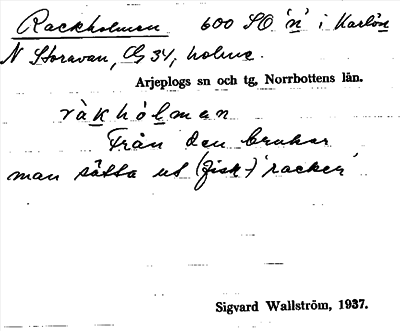 Rackholmen 600 SO 'n' i Karlön
N Storavan, G 34, holme.
Arjeplogs sn och tg, Norrbottens län.
ràkhólmen
Från den brukar
man sätta ut (fisk-)'racker'
Sigvard Wallström, 1937.